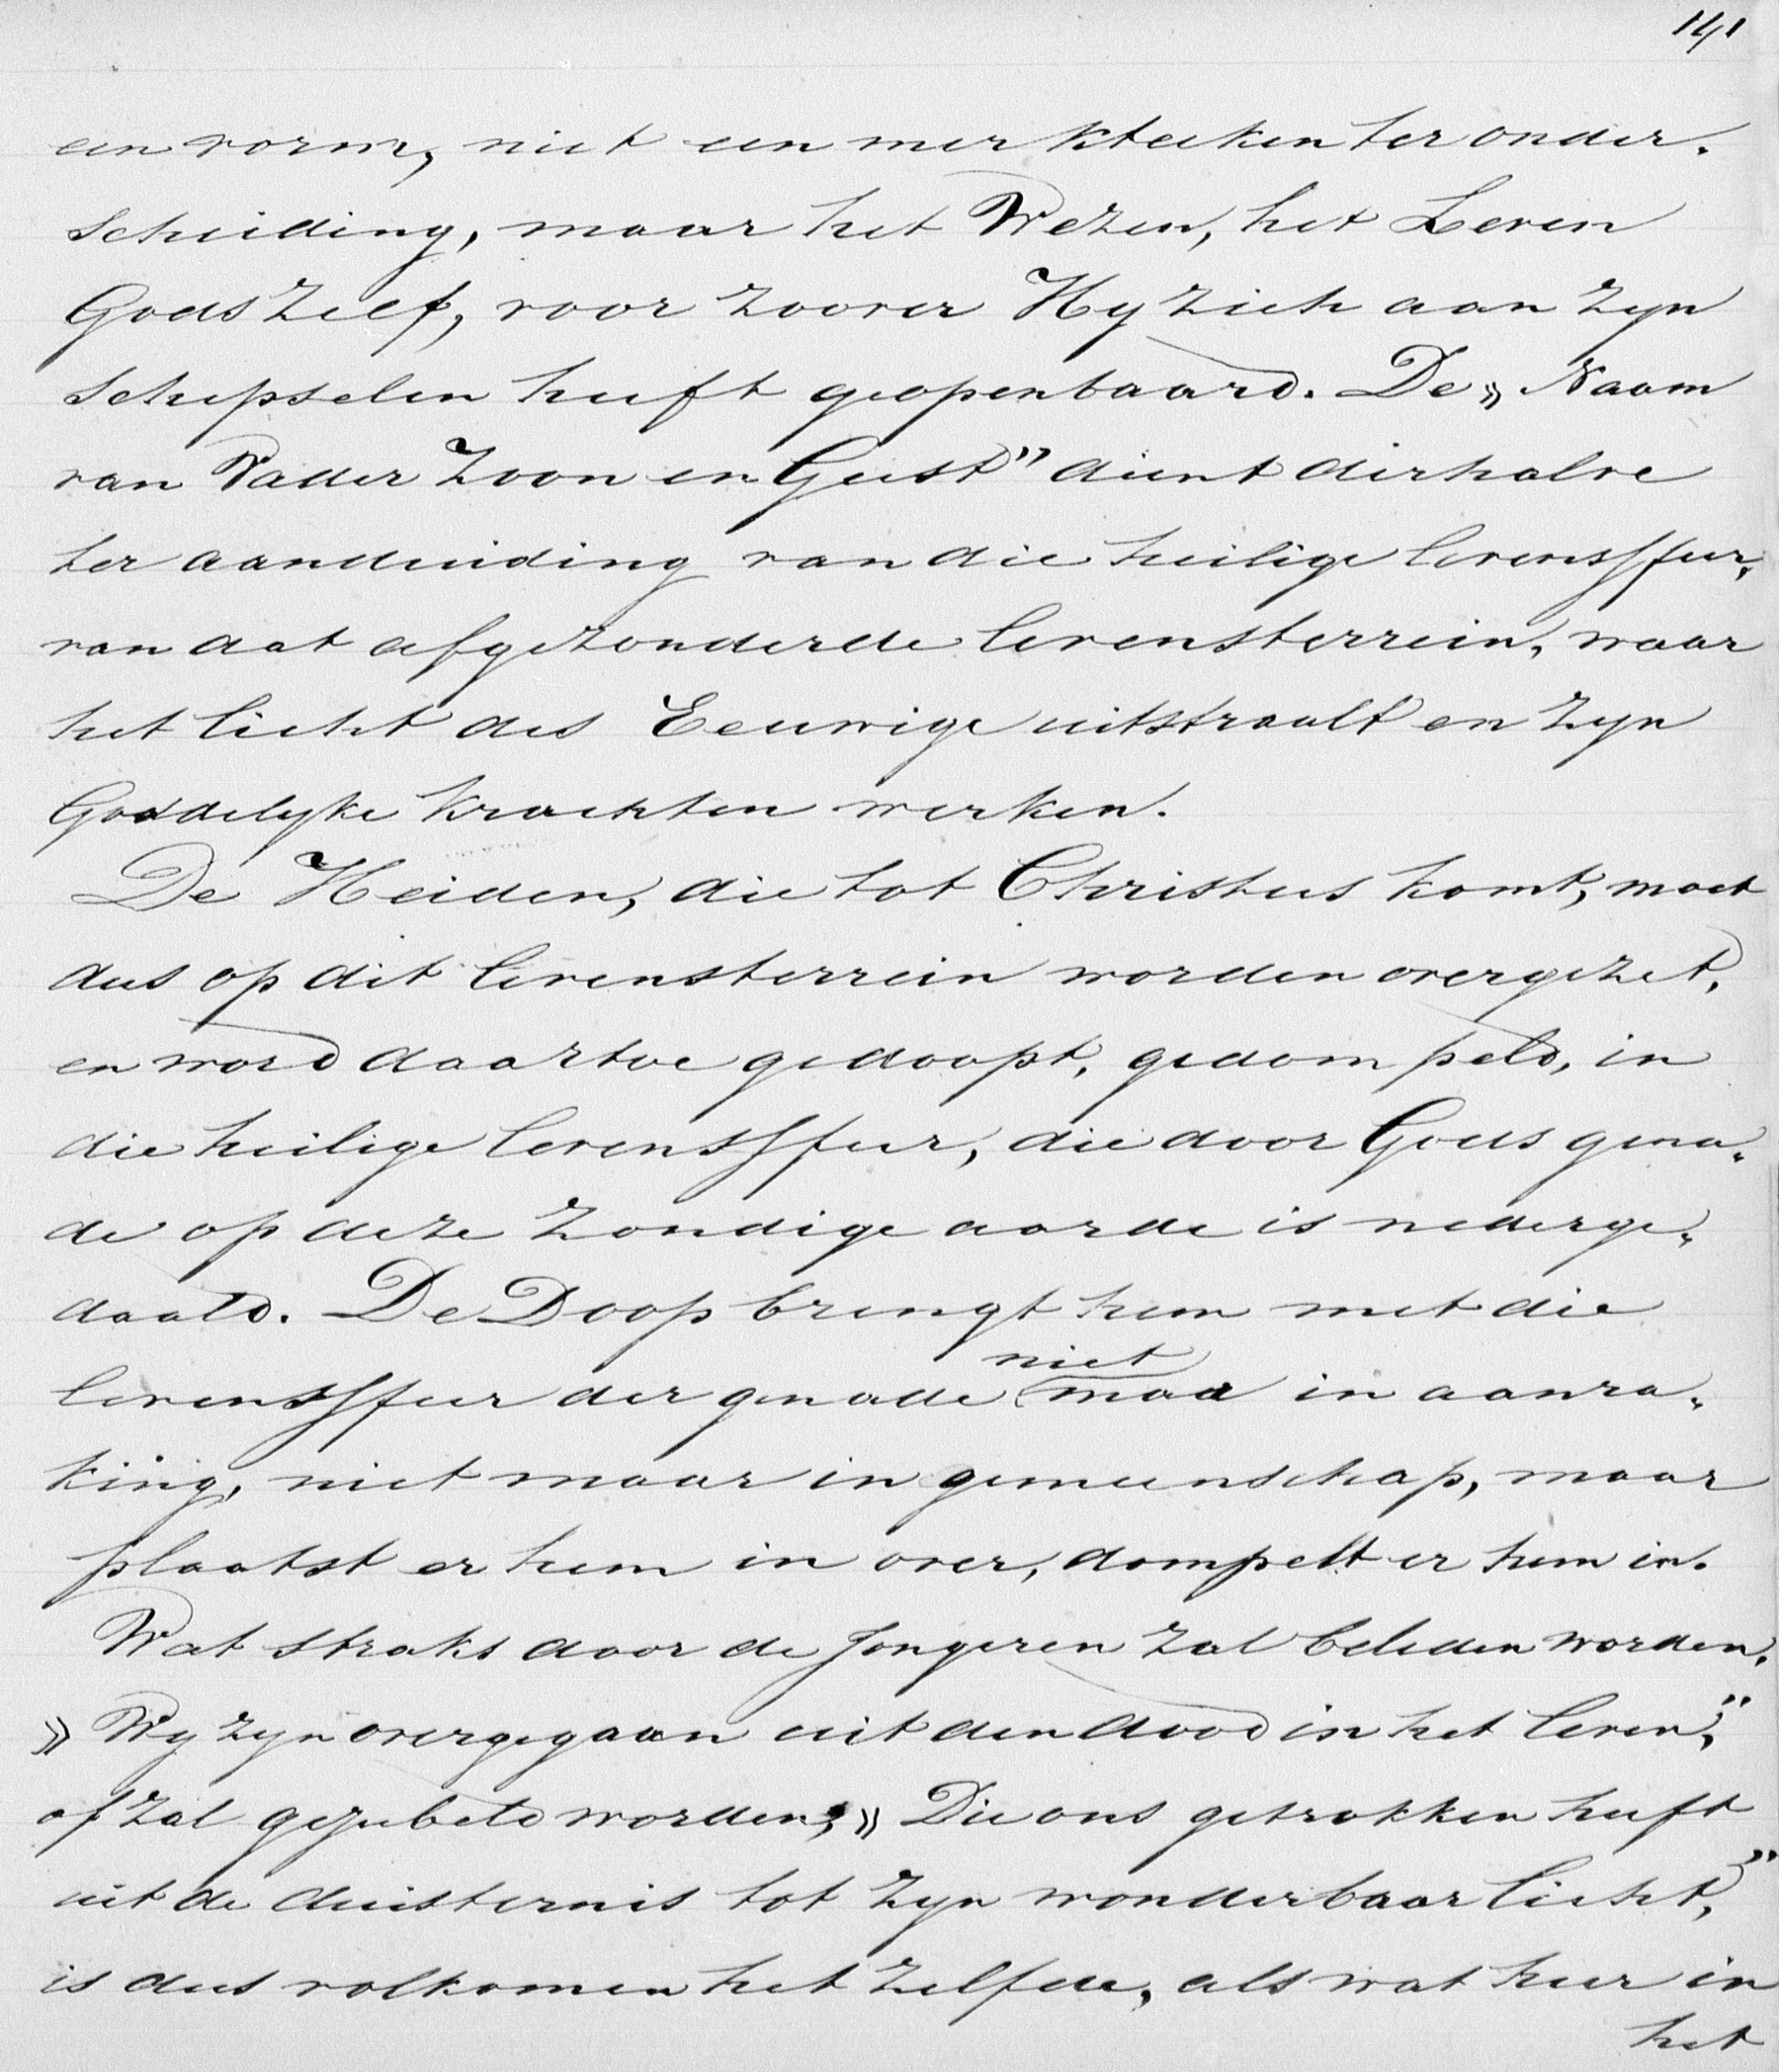 141
een vorm, niet een merkteeken ter onder-
scheiding, maar het Wezen, het Leven
Gods zelf, voor zoover Hy zich aan zyn
schepselen heeft geopenbaard. De „Naam
van Vader Zoon en Geest” dient derhalve
ter aanduiding van die heilige levenssfeer,
van dat afgezonderde levensterrein, waar
het licht des Eeuwige uitstraalt en zyn
Goddelyke krachten werken.
De Heiden, die tot Christus komt, moet
dus op dit levensterrein worden overgezet,
en word daartoe gedoopt, gedompeld, in
die heilige levenssfeer, die door Gods gena-
de op deze zondige aarde is nederge-
daald. De Doop brengt hem met die
niet
levenssfeer der genade maa in aanra-
king, niet maar in gemeenschap, maar
plaatst er hem in over, dompelt er hem in.
Wat straks door de Jongeren zal beleden worden.
„Wy zyn overgegaan uit den dood in het leven,”
of zal gejubeld worden, „Die ons getrokken heeft
uit de duisternis tot zyn wonderbaar licht,”
is dus volkomen het zelfde, als wat hier in
het